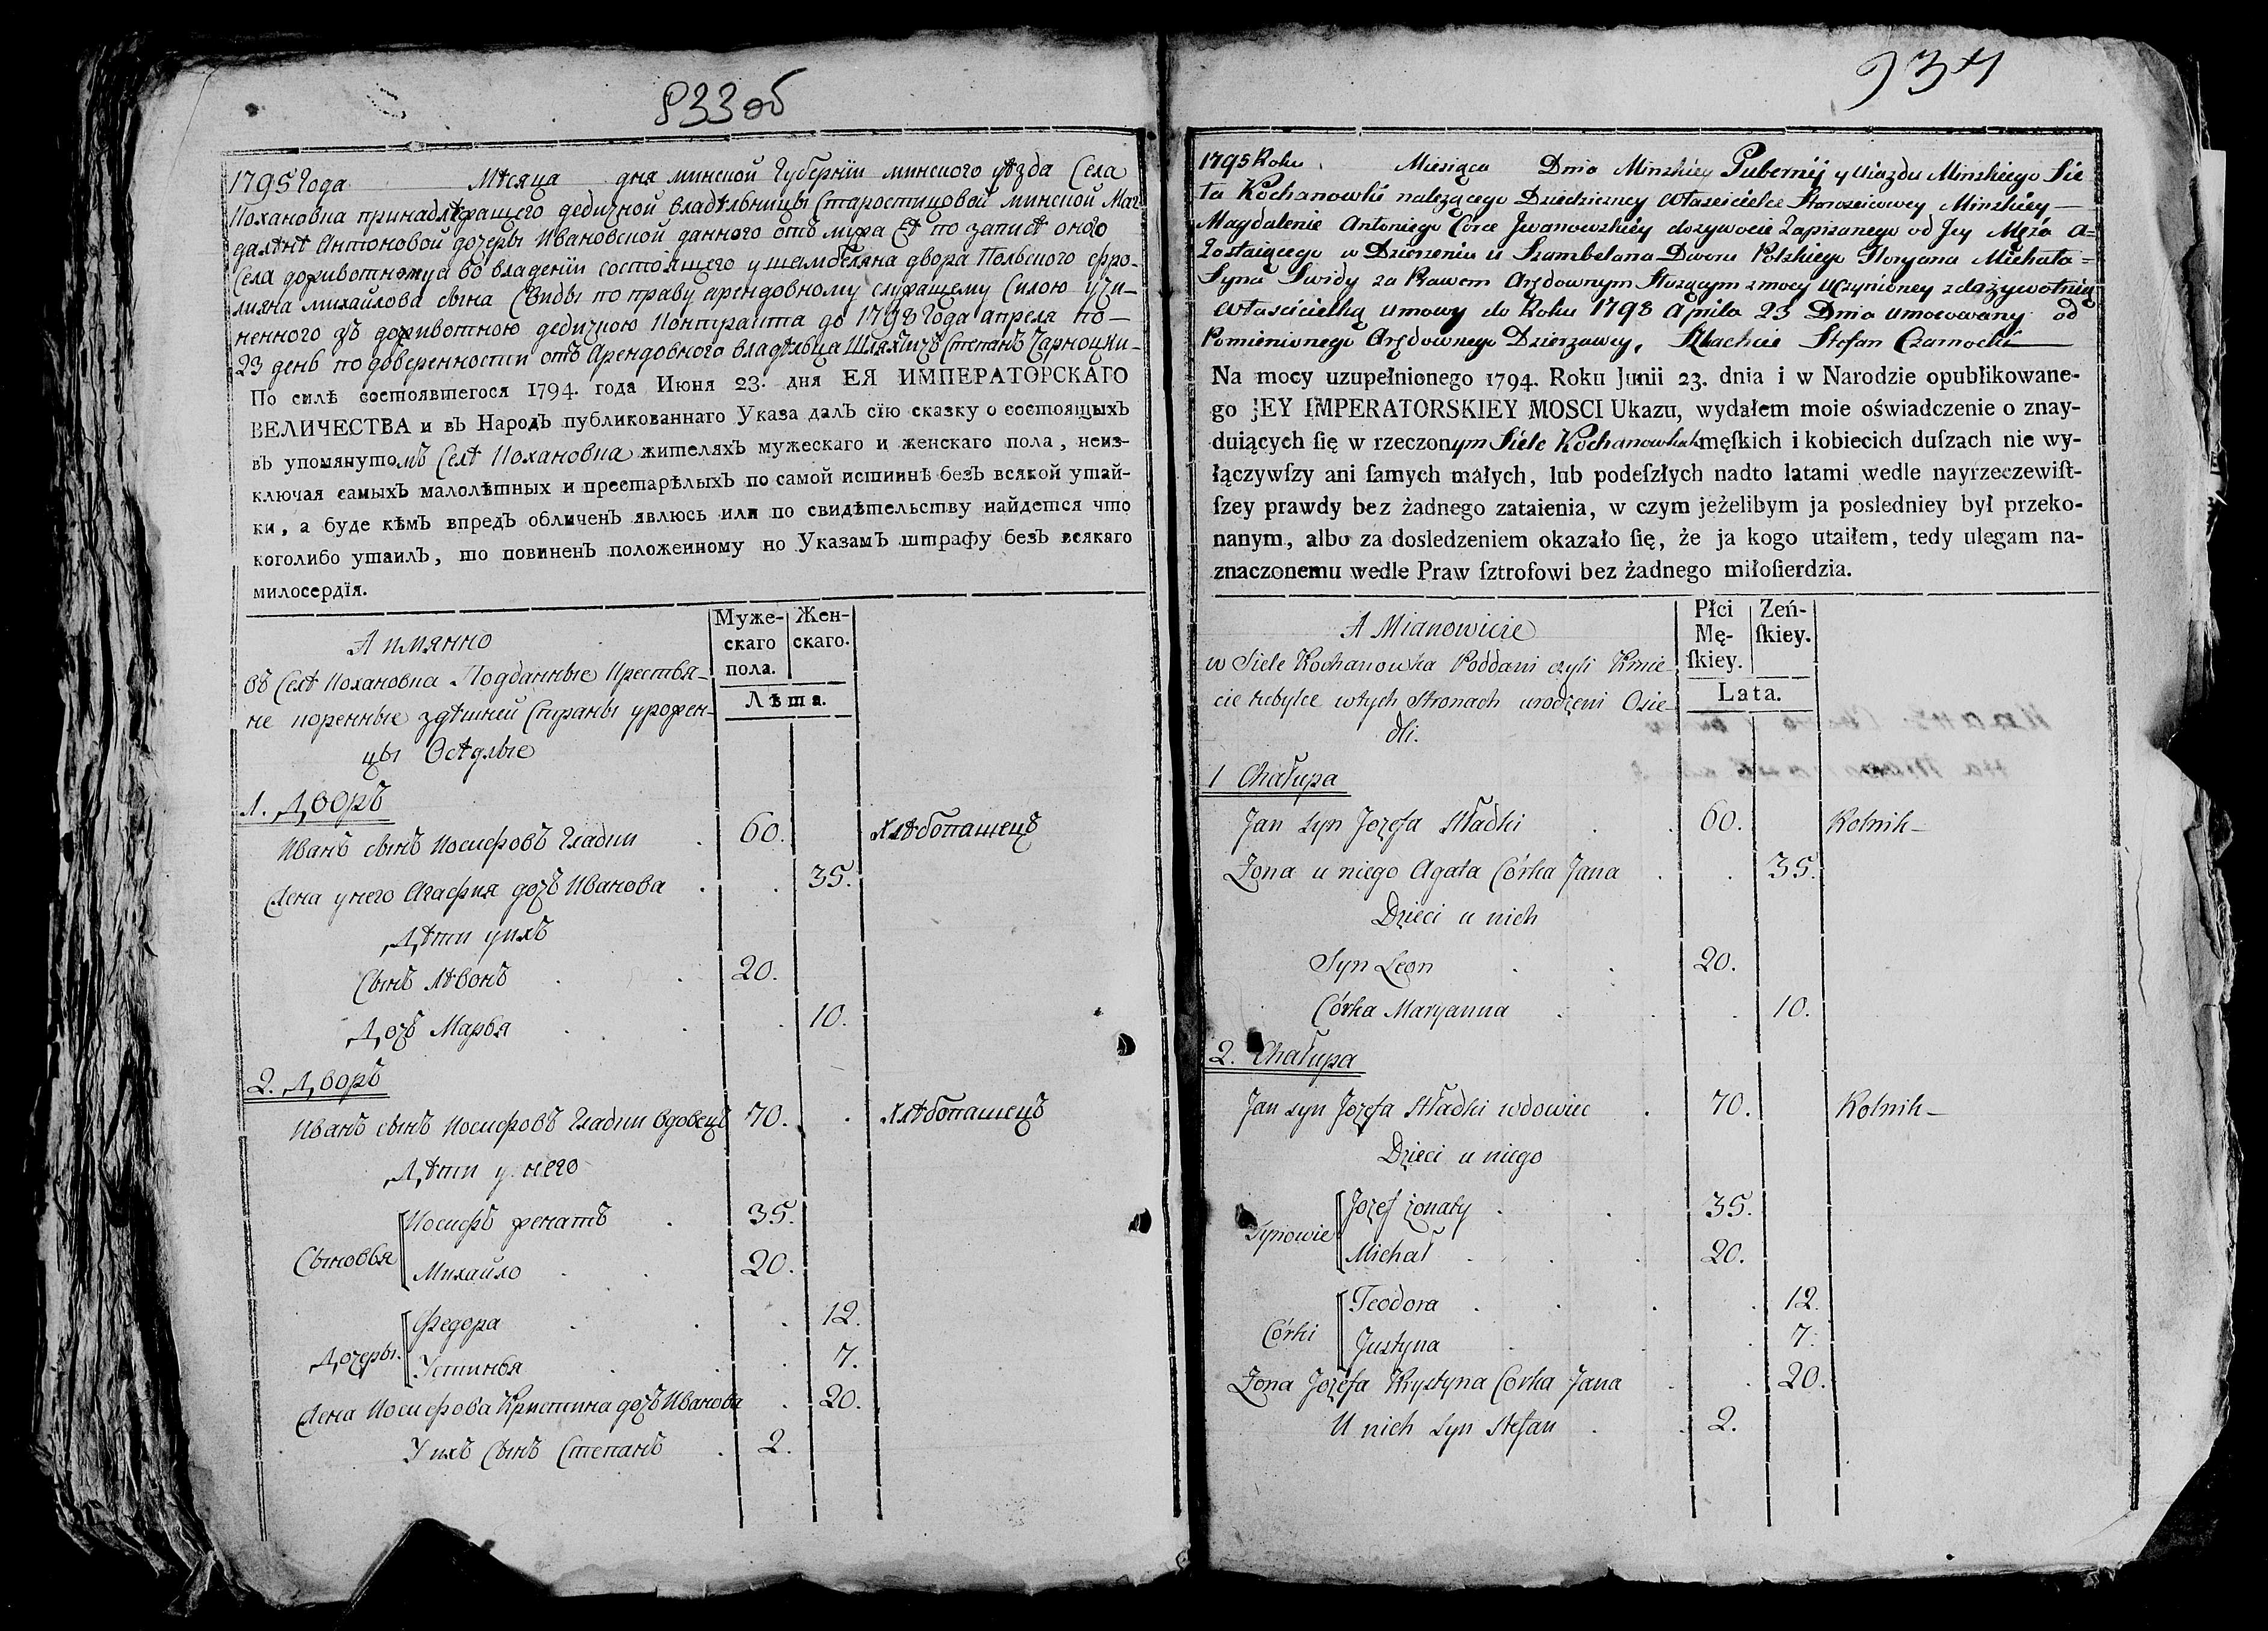 833 об
1795 Года Мѣсяца дня минской Губерніи минского уѣзда Села
Кохановка принадлежащего дедичной владѣльницы Старостицовой минской Маг
далѣнѣ Антоновой дочеры Ивановской данного отъ мужа Еѣ по записѣ оного
Села доживотному а во владеніи состоящего у шамбеляна двора Польского Фло-
ліяна михайлова сына Свиды по праву арендовному служащему Силою учи-
ненного зъ доживотною дедичною Контракта до 1798 Года апреля по-
23 день по доверенности отъ Арендовного владѣльца Шляхтичъ Степанъ Чарноцки-
По силѣ состоявшегося 1794. года Июня 23. дня ЕЯ ИМПЕРАТОРСКАГО
ВЕЛИЧЕСТВА и въ Народъ публикованнаго Указа далъ сїю сказку о состоящыхъ
въ упомянутомъ Селѣ Кохановка жителяхъ мужескаго и женскаго пола, неиз-
ключая самыхъ малолѣтных и престарѣлыхъ по самой истиннѣ безъ всякой утай-
ки, а буде кѣмъ впредъ обличенъ явлюсь или по свидѣтельству найдется что
коголибо утаилъ, то повиненъ положенному по Указамъ штрафу безъ всякаго
милосердїя.
А имянно
въ Селѣ Кохановка Подданные Крестья-
не коренные здѣшней Страны урожен-
цы Осѣдлые
Муже-
скаго
пола.
Жен-
скаго.
Лѣта.
1. Дворъ
Иванъ сынъ Иосифовъ Гладки . 60. Хлѣбопашецъ
Жена унего Агафия дочъ Иванова . . 35.
Дѣти унхъ
Сынъ Лѣвонъ . . 20.
Дочъ Марья . . . 10.
2. Дворъ
Иванъ сынъ Иосифовъ Гладки вдовецъ 70. . Хлѣбопашецъ
Дѣти у него
Сыновья
Иосифъ женатъ . 35.
Михайло . . 20.
Дочеры.
Федора . . . 12.
Устинья . . . 7.
Жена Иосифова Кристина дочъ Иванова . 20.
У ихъ Сынъ Степанъ . 2.
934
1795 Roku Miesiąca Dnia Minskiey Gubernij y Uiazdu Minskiego Sie
ła Kochanowki nalezącego Dziedziczney Właścicielce Starościcowey Minskiey
Magdalenie Antoniego Corce Jwanowskiey dozywocie Zapisanego od Jey Męża a=
Zostaiącego w Dzierzeniu u Szambelana Dworu Polskiego Floryana Michała=
Syna Swidy za Prawem Arędownym Słuzącym zmocy Uczynioney z dozywotnią
Właścicielką umowy do Roku 1798 Aprila 23 Dnia umocowany od
Pomienionego Arędownego Dzierzawcy, Szlachcic Stefan Czarnocki
Na mocy uzupełnionego 1794. Roku Junii 23. dnia i w Narodzie opublikowane-
go JEY IMPERATORSKIEY MOSCI Ukazu, wydałem moie oświadczenie o znay-
duiących ſię w rzeczonym Siele Kochanowkah męſkich i kobiecich duſzach nie wy-
łączywſzy ani ſamych małych, lub podeſzłych nadto latami wedle nayrzeczewiſt-
ſzey prawdy bez żadnego zataienia, w czym jeżelibym ja posledniey był przeko-
nanym, albo za dosledzeniem okazało ſię, że ja kogo utaiłem, tedy ulegam na-
znaczonemu wedle Praw ſztrofowi bez żadnego miłoſierdzia.
A Mianowicie
w Siele Kochanowka Poddani czyli Kmie-
cie nebylce wtych Stronach urodzeni Osie-
dli.
Płci
Mę-
ſkiey.
Zeń-
ſkiey.
Lata.
1 Chałupa
Jan syn Jozefa Hładki . . 60. Rolnik
Zona u niego Agata Córka Jana . . 35.
Dzieci u nich
Syn Leon . . 20.
Córka Maryanna . . . 10.
2. Chałupa
Jan syn Jozefa Hładki wdowiec . 70. Rolnik
Dzieci u niego
Synowie
Jozef żonaty . . 35.
Michał . . . 20.
Córki
Teodora . . . . 12.
Justyna . . . 7.
Zona Jozefa Krystyna Corka Jana . . 20.
U nich syn Stefan . . 2.